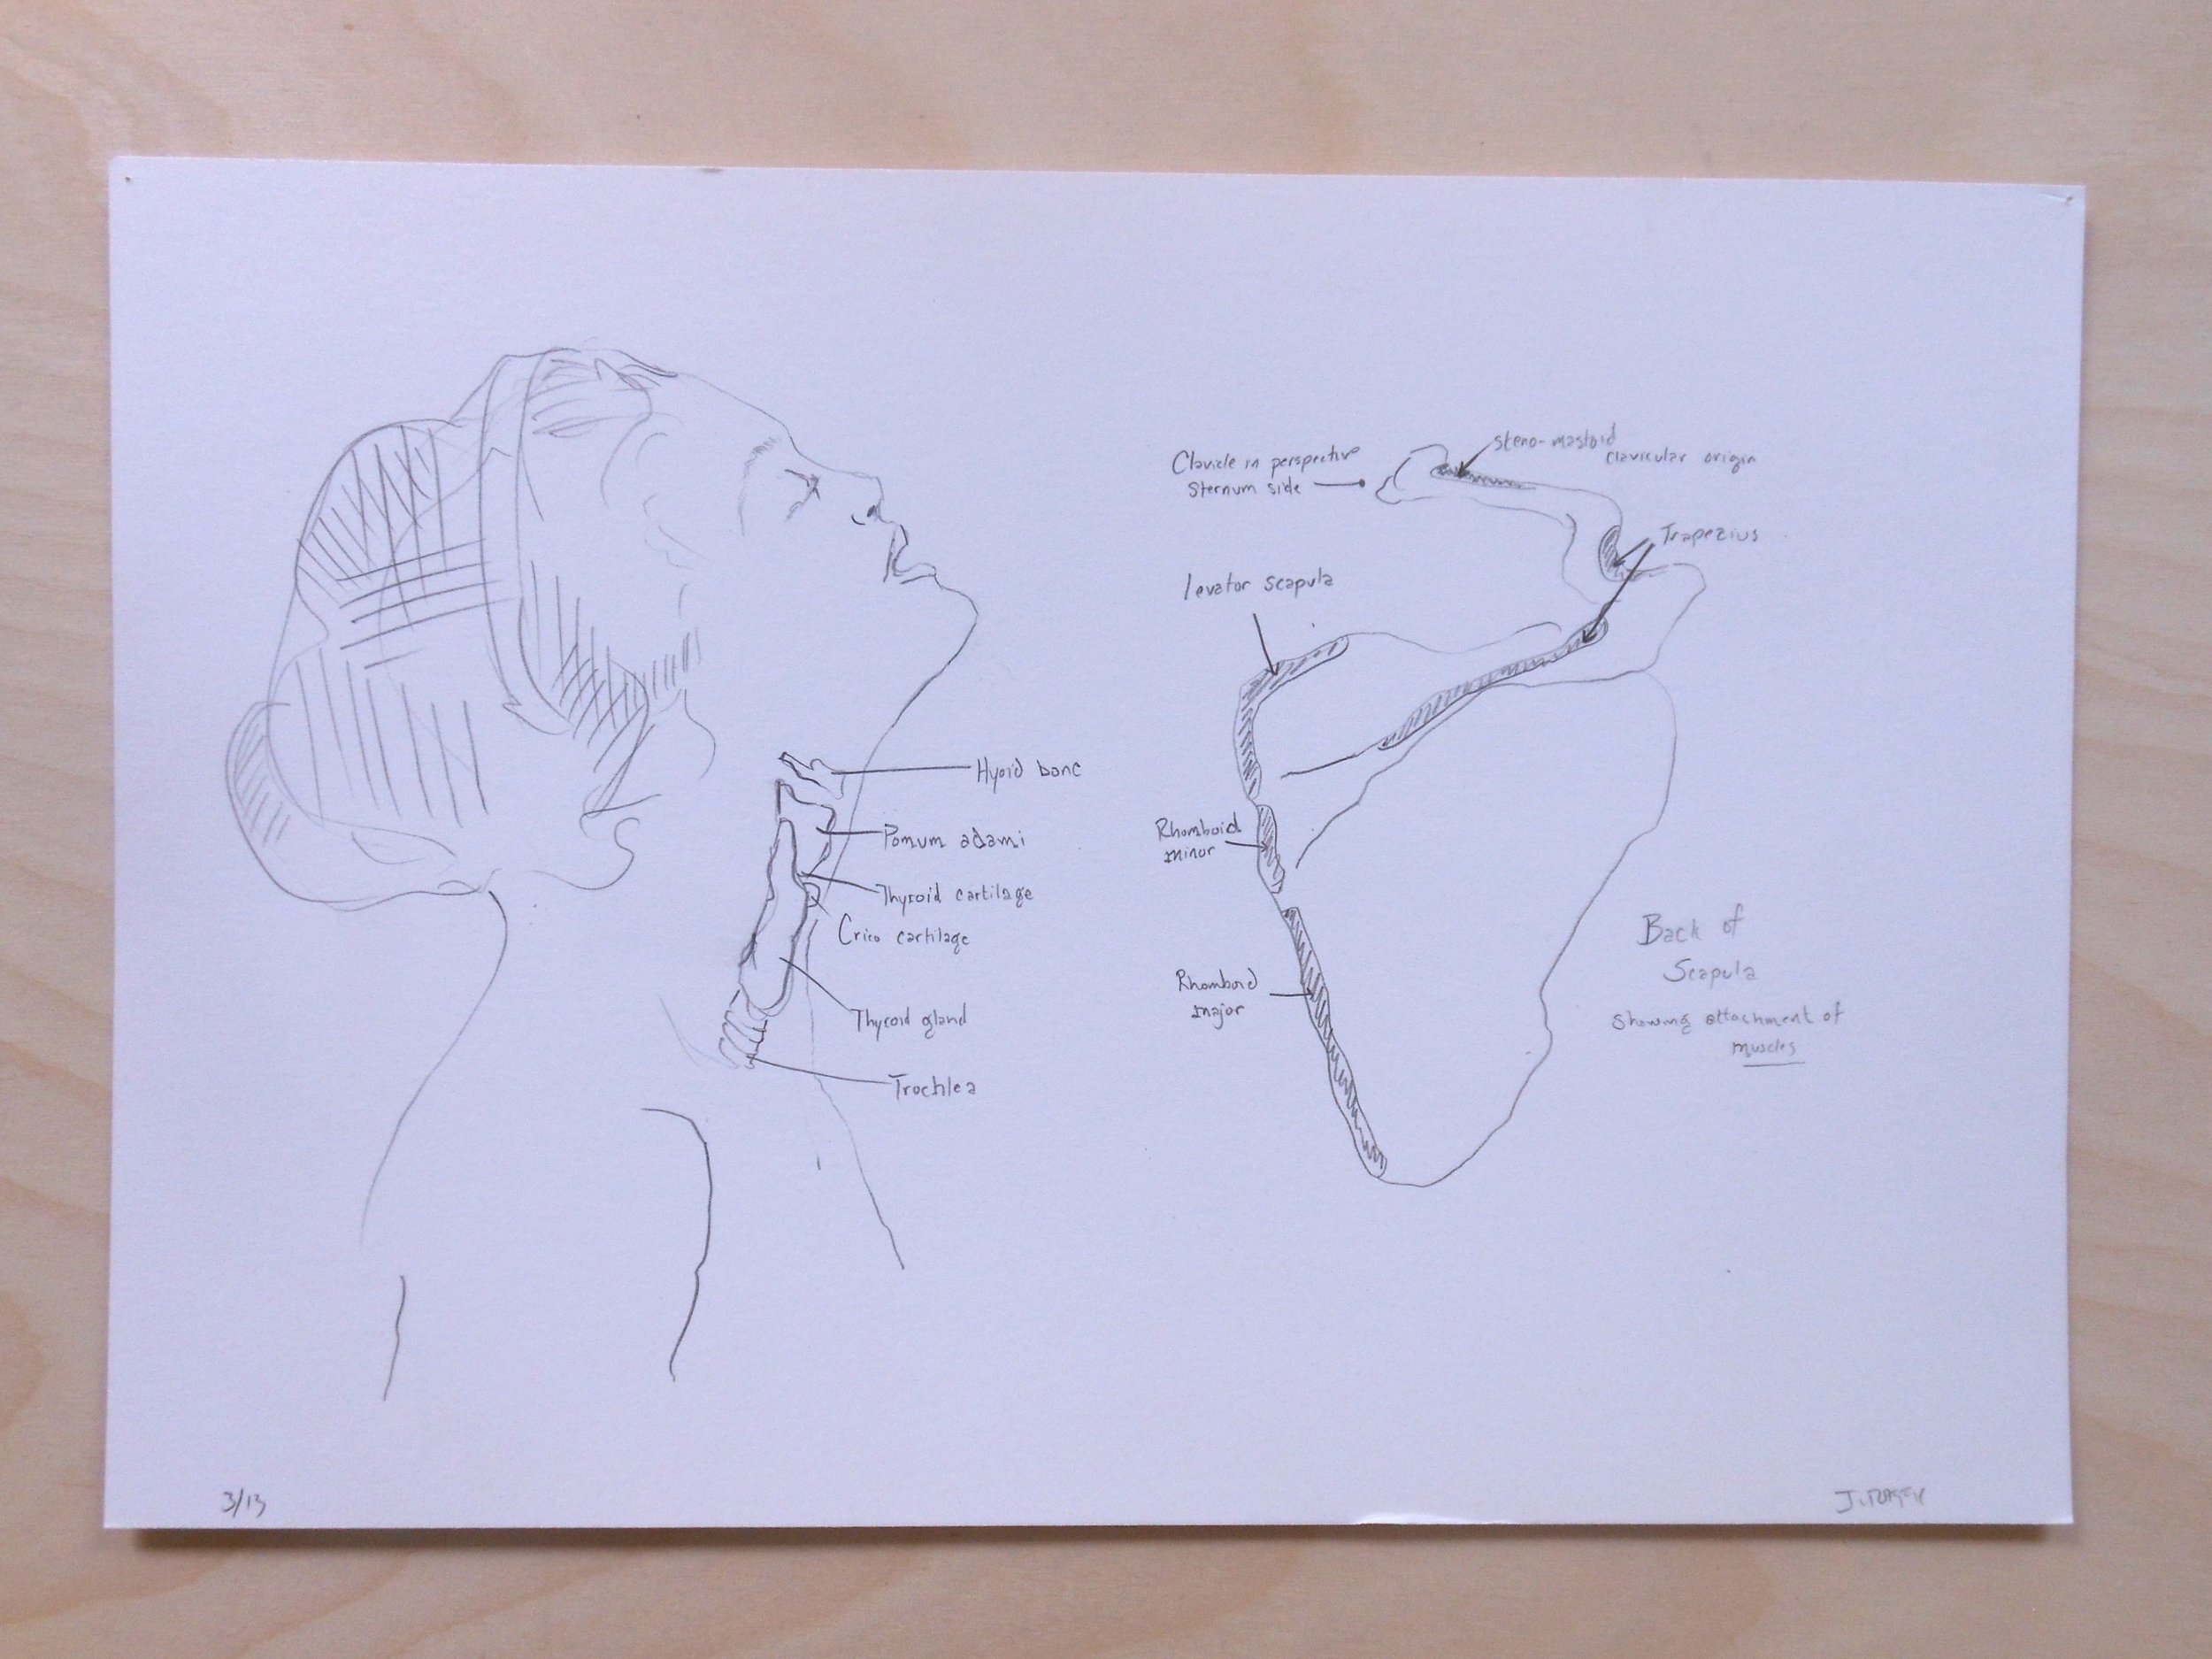 Hyoid bone
Pomum adami
Thyroid cartilage
Crico cartilage
Thyroid gland
Trochlea
Clavicle in perspective
Sternum side
steno-mastoid
clavicular origin
Trapezius
levator scapula
Rhomboid
minor
Rhomboid
major
Back of
Scapula
Showing attachment of
muscles
3/13